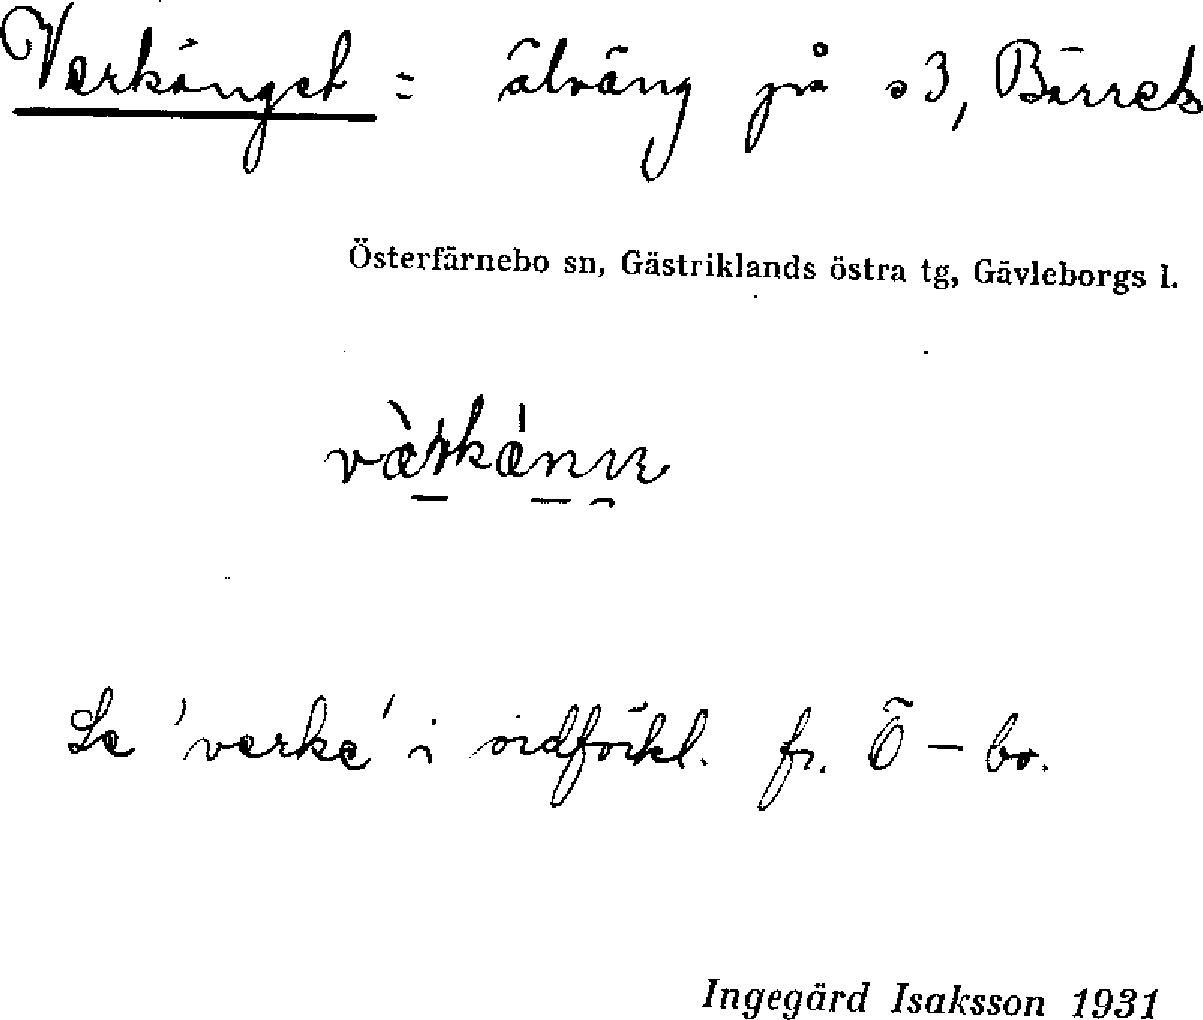 Verkänget = älväng på s3, Bärrek
Österfärnebo sn, Gästriklands östra tg, Gävleborgs l.
Se 'verke' i ordförkl. fr. Ö-bo.
Ingegärd Isaksson 1931